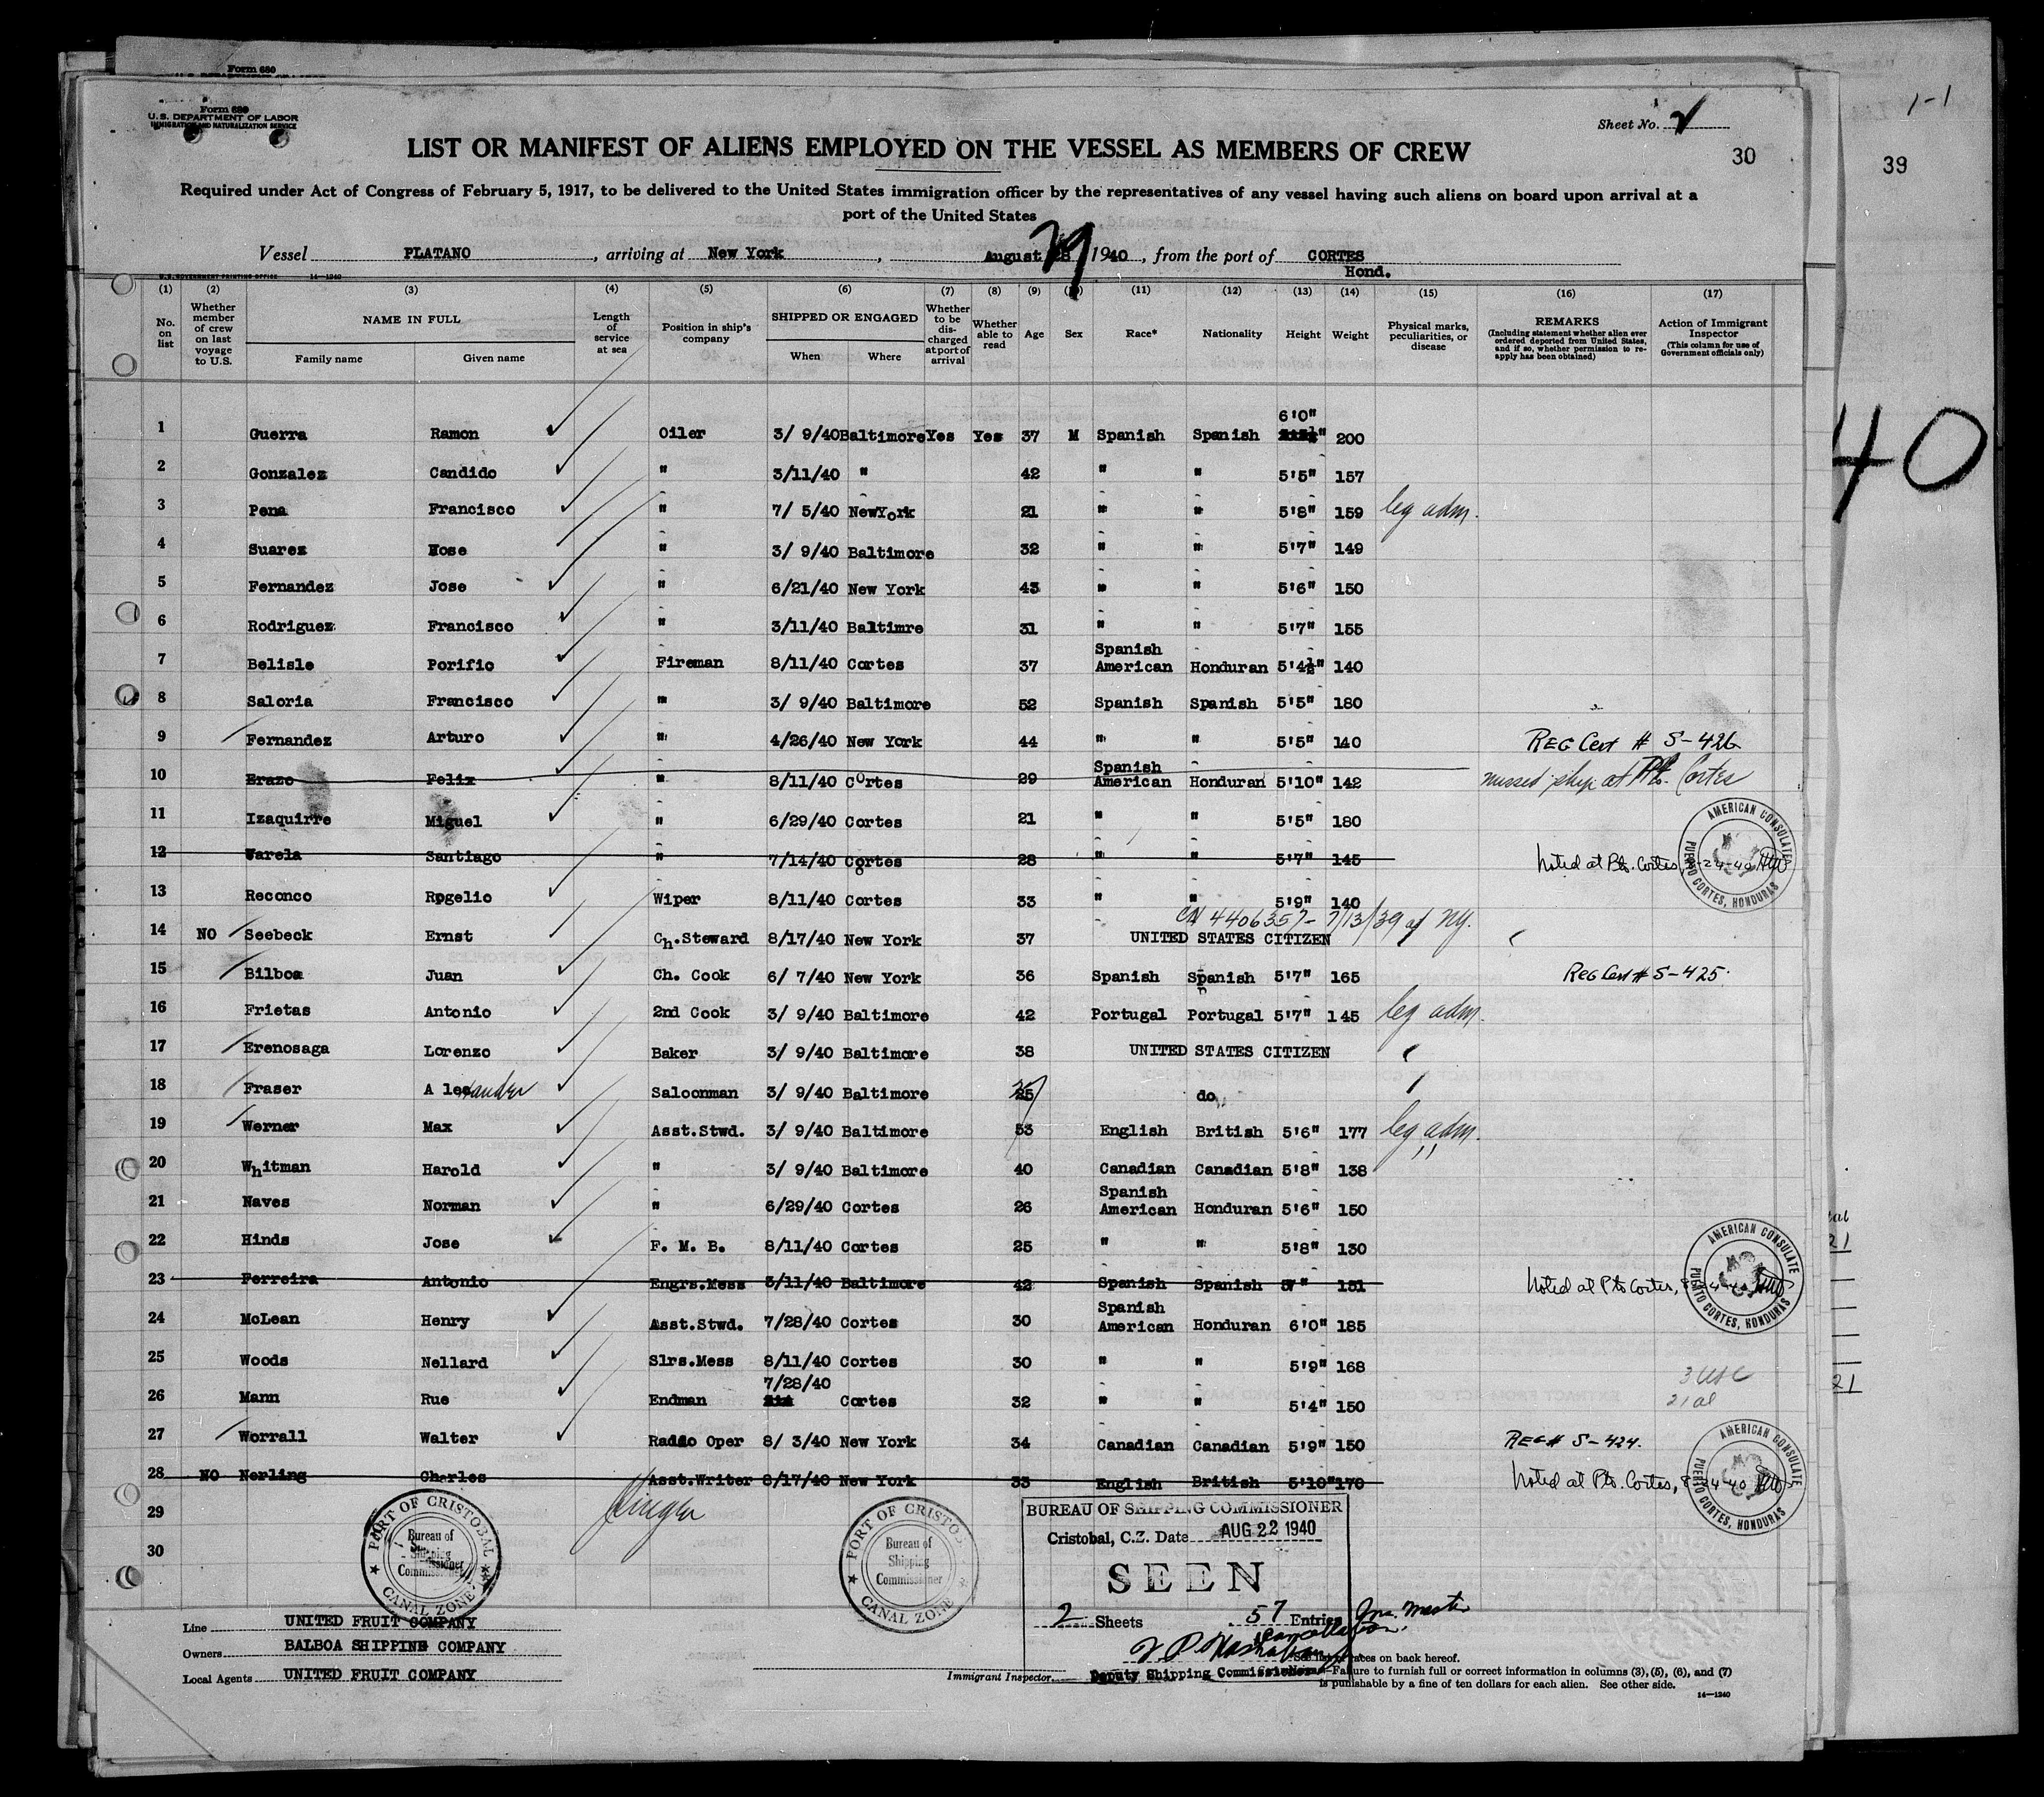 Form 680
Form 680
U.S. DEPARTMENT OF LABOR
IMMIGRATION AND NATURALIZATION SERVICE
Sheet No. 2
1-1
LIST OR MANIFEST OF ALIENS EMPLOYED ON THE VESSEL AS MEMBERS OF CREW
30
39
Required under Act of Congress of February 5, 1917, to be delivered to the United States immigration officer by the representatives of any vessel having such aliens on board upon arrival at a
port of the United States
Vessel PLATANO, arriving at New York, August 28 29 1940, from the port of CORTES
Hond.
U.S. GOVERNMENT PRINTING OFFICE 14—1240
(1) (2) (3) (4) (5) (6) (7) (8) (9) (10) (11) (12) (13) (14) (15) (16) (17)
No. on list
Whether member of crew on last voyage to U.S.
NAME IN FULL
Family name Given name
Length of service at sea
Position in ship's company
SHIPPED OR ENGAGED
When Where
Whether to be discharged at port of arrival
Whether able to read
Age
Sex
Race*
Nationality
Height
Weight
Physical marks, peculiarities, or disease
REMARKS
(Including statement whether alien ever ordered deported from United States, and if so, whether permission to reapply has been obtained)
Action of Immigrant Inspector
(This column for use of Government officials only)
40
6'0"
1 Guerra Ramon Oiler 3/ 9/40 Baltimore Yes Yes 37 M Spanish Spanish 200
2 Gonzalez Candido " 3/11/40 " 42 " " 5'5" 157
3 Pena Francisco " 7/ 5/40 NewYork 21 " " 5'8" 159 leg adm.
4 Suarez Hose " 3/ 9/40 Baltimore 32 " " 5'7" 149
5 Fernandez Jose " 6/21/40 New York 43 " " 5'6" 150
6 Rodriguez Francisco " 3/11/40 Baltimre 31 " " 5'7" 155
7 Belisle Porific Fireman 8/11/40 Cortes 37 Spanish American Honduran 5'4½" 140
8 Saloria Francisco " 3/ 9/40 Baltimore 52 Spanish Spanish 5'5" 180
9 Fernandez Arturo " 4/26/40 New York 44 " " 5'5" 140 REG Cert # S-426
10 Erazo Felix " 8/11/40 Cortes 29 Spanish American Honduran 5'10" 142 missed ship at Pto. Cortes
11 Izaquirre Miguel " 6/29/40 Cortes 21 " " 5'5" 180
12 Varela Santiago " 7/14/40 Cortes 28 " " 5'7" 145 Noted at Pto. Cortes, 8-24-40
AMERICAN CONSULATE PUERTO CORTES, HONDURAS
13 Reconco Rogelio Wiper 8/11/40 Cortes 33 " " 5'9" 140
CN 4406357- 7/13/39 at NY.
14 NO Seebeck Ernst Ch.Steward 8/17/40 New York 37 UNITED STATES CITIZEN
15 Bilboa Juan Ch. Cook 6/ 7/40 New York 36 Spanish Spanish 5'7" 165 REG Cert # S-425.
16 Frietas Antonio 2nd Cook 3/ 9/40 Baltimore 42 Portugal Portugal 5'7" 145 leg adm.
17 Erenosaga Lorenzo Baker 3/ 9/40 Baltimore 38 UNITED STATES CITIZEN
18 Fraser Alexander Saloonman 3/ 9/40 Baltimore 25 do
19 Werner Max Asst.Stwd. 3/ 9/40 Baltimore 53 English British 5'6" 177 leg adm.
20 Whitman Harold " 3/ 9/40 Baltimore 40 Canadian Canadian 5'8" 138 "
21 Naves Norman " 6/29/40 Cortes 26 Spanish American Honduran 5'6" 150
22 Hinds Jose F. M. B. 8/11/40 Cortes 25 " " 5'8" 130
23 Ferreira Antonio Engrs.Mess 3/11/40 Baltimore 42 Spanish Spanish 5'7" 151 Noted at Pto Cortes, 8-24-40
AMERICAN CONSULATE PUERTO CORTES, HONDURAS
24 McLean Henry Asst.Stwd. 7/28/40 Cortes 30 Spanish American Honduran 6'0" 185
25 Woods Nellard Slrs.Mess 8/11/40 Cortes 30 " " 5'9" 168
3 USC
21 al
26 Mann Rue Endman 7/28/40 Cortes 32 " " 5'4" 150
27 Worrall Walter Raddo Oper 8/ 3/40 New York 34 Canadian Canadian 5'9" 150 REG# S-424.
28 NO Nerling Charles Asst.Writer 8/17/40 New York 33 English British 5'10" 170 Noted at Pto. Cortes, 8-24-40
AMERICAN CONSULATE PUERTO CORTES, HONDURAS
29
30
21
21
PORT OF CRISTOBAL
Bureau of Shipping Commissioner
CANAL ZONE
PORT OF CRISTOBAL
Bureau of Shipping Commissioner
CANAL ZONE
BUREAU OF SHIPPING COMMISSIONER
Cristobal, C.Z. Date AUG 22 1940
SEEN
2 Sheets 57 Entries
Deputy Shipping Commissioner
Line UNITED FRUIT COMPANY
Owners BALBOA SHIPPING COMPANY
Local Agents UNITED FRUIT COMPANY
Immigrant Inspector
races on back hereof.
Failure to furnish full or correct information in columns (3), (5), (6), and (7)
is punishable by a fine of ten dollars for each alien. See other side.
14—1240